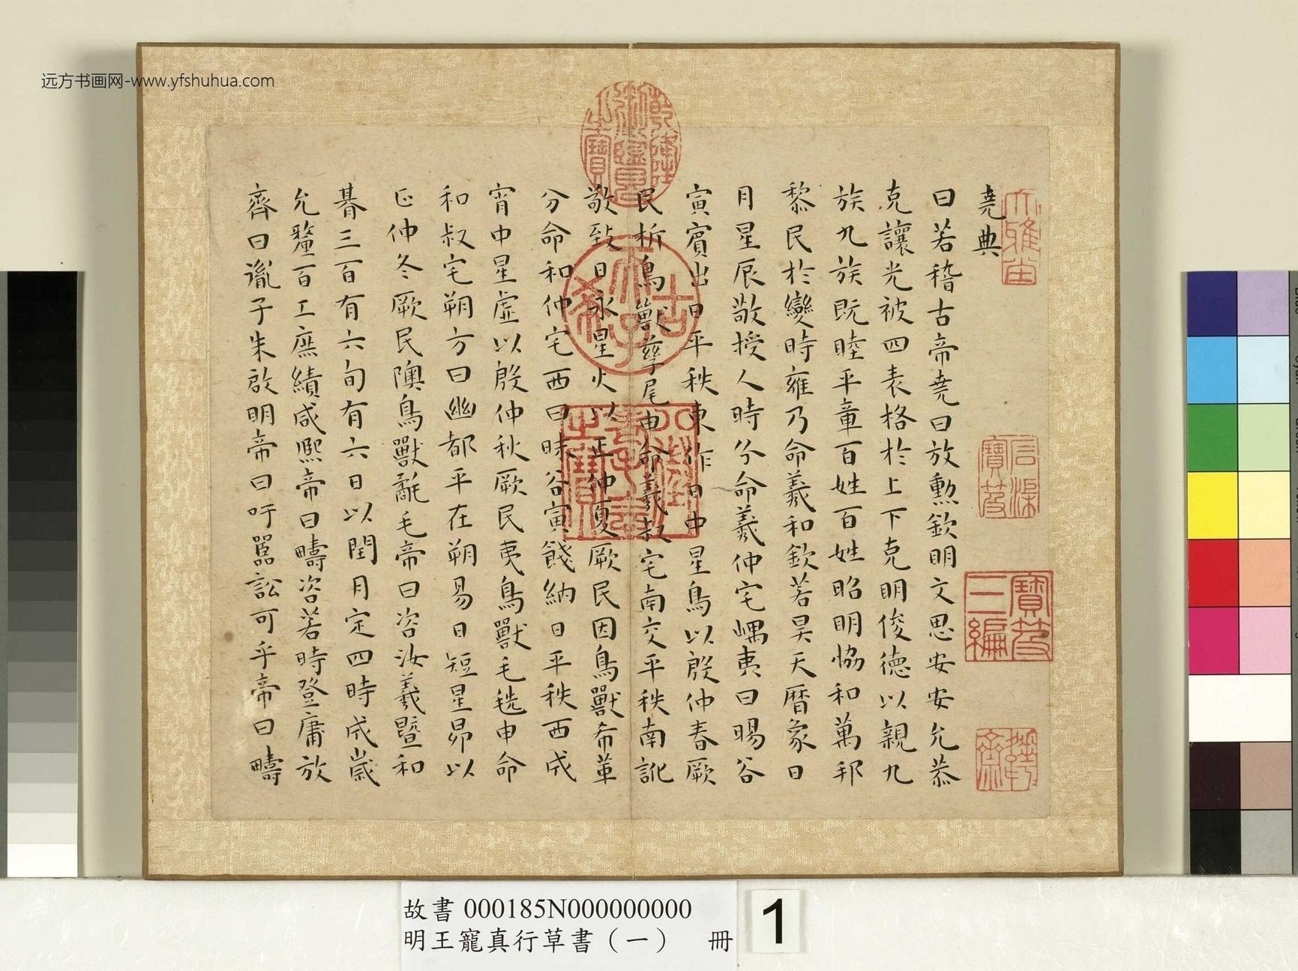 远方书画网-www.yfshuhua.com
堯典
曰若稽古帝堯曰放勲欽明文思安安允恭
克讓光被四表格於上下克明俊德以親九
族九族既睦平章百姓百姓昭明恊和萬邦
黎民於變時雍乃命羲和欽若昊天曆象日
月星辰敬授人時分命羲仲宅嵎夷曰暘谷
寅賓出日平秩東作日中星鳥以殷仲春厥
民析鳥獸孳尾申命羲叔宅南交平秩南訛
敬致日永星火以正仲夏厥民因鳥獸希革
分命和仲宅西曰昧谷寅餞納日平秩西成
宵中星虛以殷仲秋厥民夷鳥獸毛毨申命
和叔宅朔方曰幽都平在朔易日短星昴以
正仲冬厥民隩鳥獸氄毛帝曰咨汝羲暨和
朞三百有六旬有六日以閏月定四時成歲
允釐百工庶績咸熙帝曰疇咨若時登庸放
齊曰胤子朱啟明帝曰吁嚚訟可乎帝曰疇
乾隆御覽之寶
古希天子
八徵耄念之寶
寶笈三編
故書 000185N000000000
明王寵真行草書（一） 冊
1